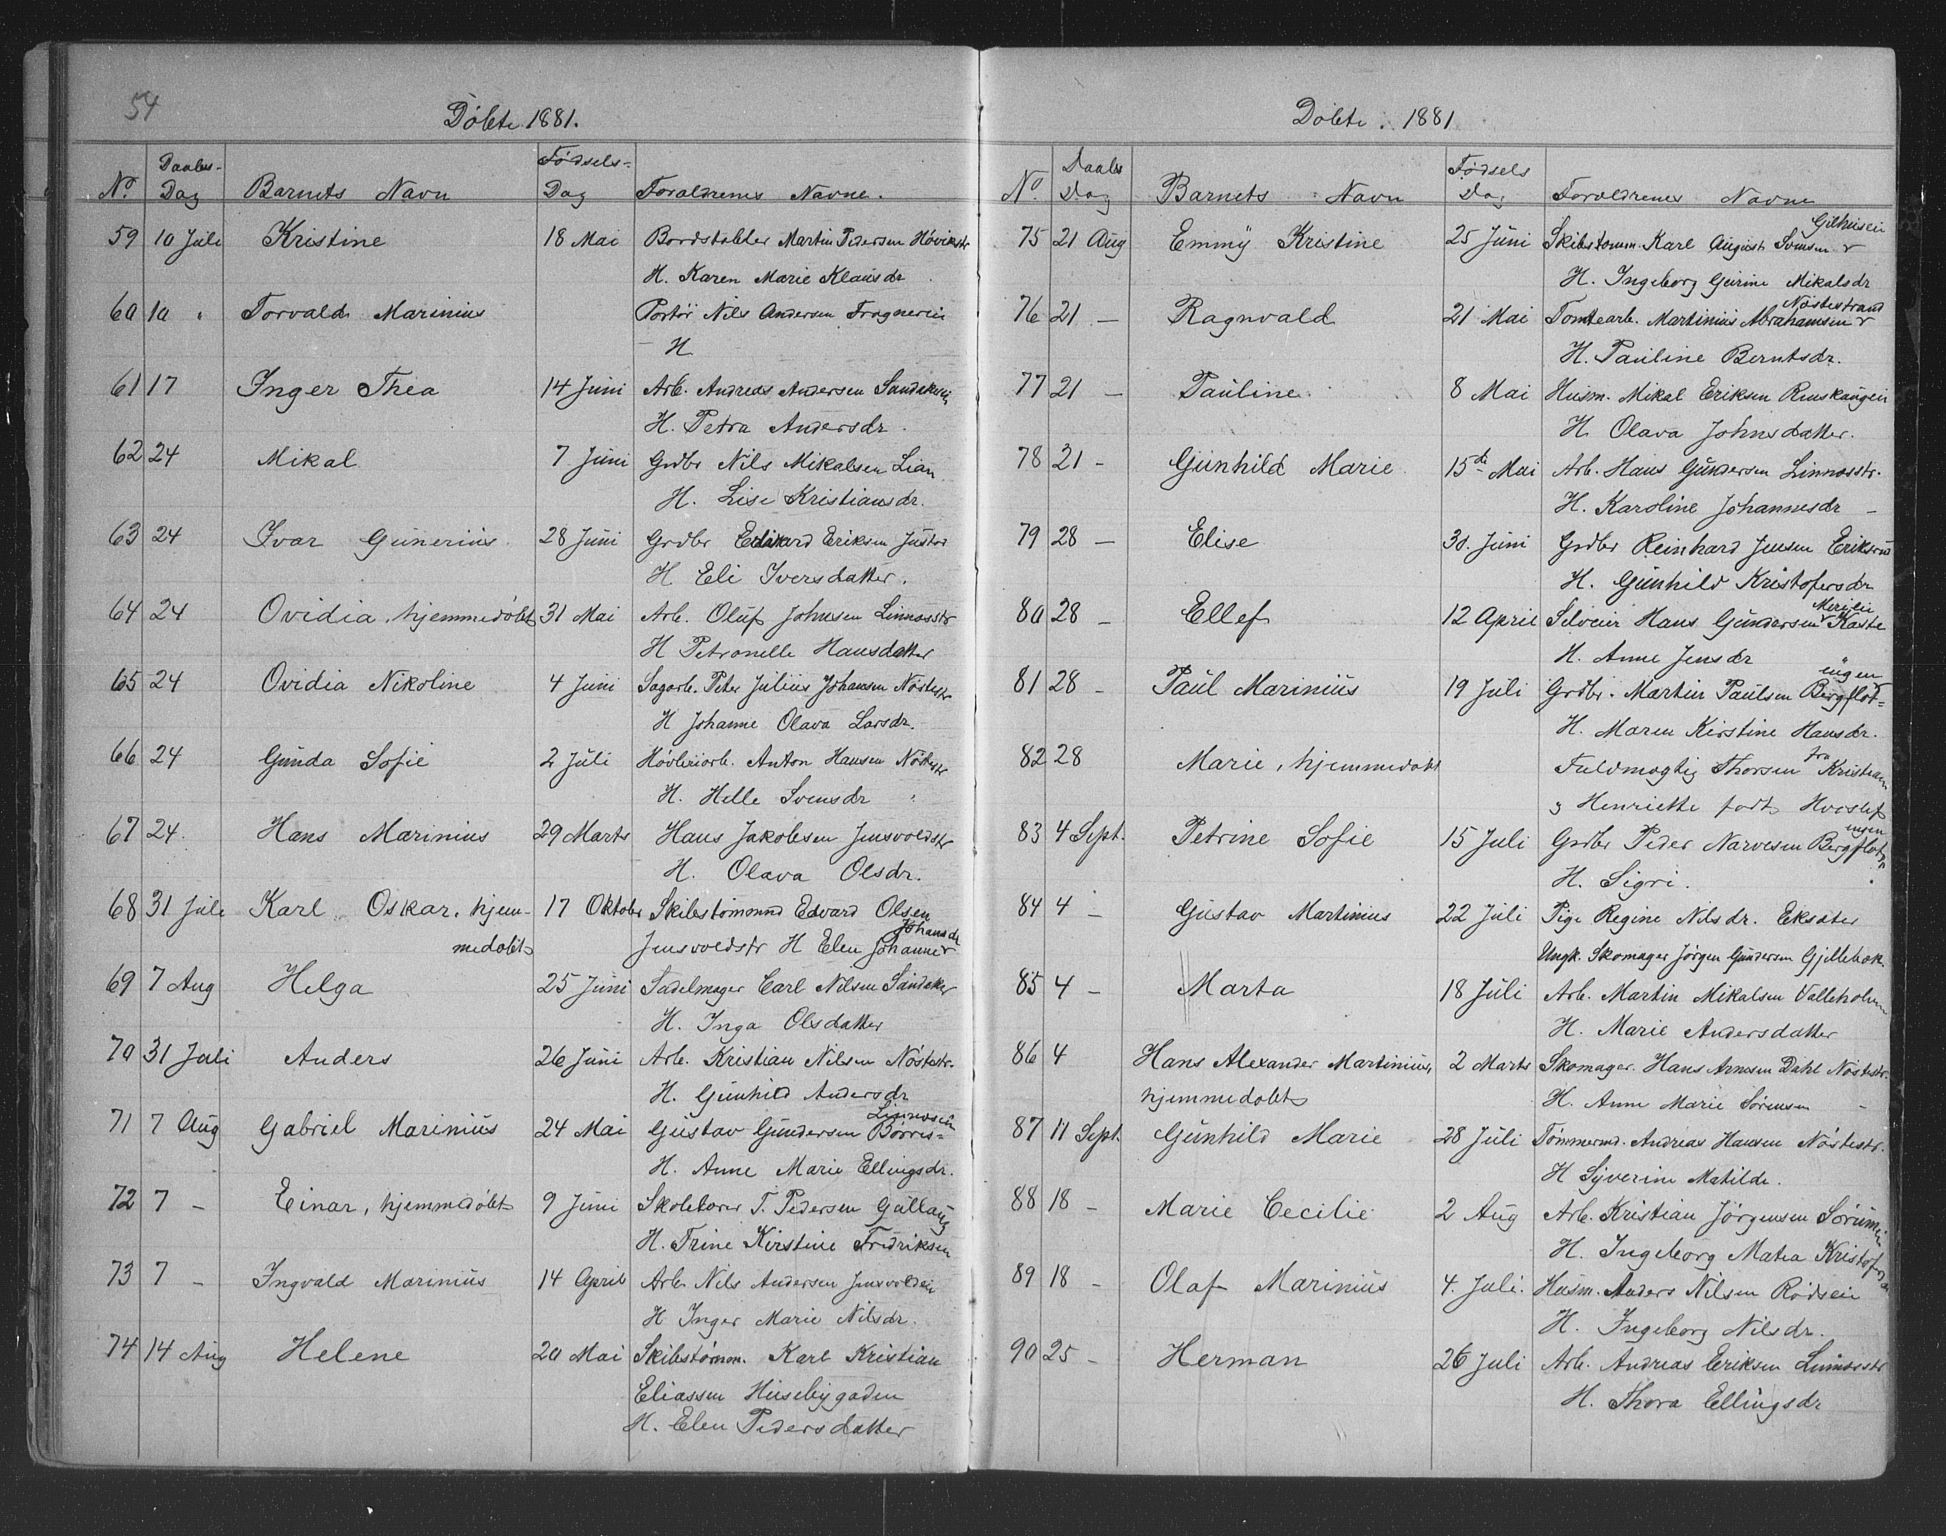 54
Döbte 1881.
No. Daabs-Dag Barnets Navn Födsels-Dag Foraldrenes Navne.
59 10 Juli Kristine 18 Mai Bordstabler Martin Pedersen Hövikstr
H. Karen Marie Klausdr
60 10 " Torvald Marinius Portör Nils Andersen Frognerei
H
61 17 Inger Thea 14 Juni Arb. Andreas Andersen Sandakerei
H. Petra Andersdr.
62 24 Mikal 7 Juni Grdbr Nils Mikalsen Lian
H. Lise Kristiansdr.
63 24 Ivar Gunerius 28 Juni Grdbr Edvard Eriksen Justad
H Eli Iversdatter.
64 24 Ovidia, hjemmedöbt 31 Mai Arb. Oluf Johnsen Linnesstr
H Petronelle Hansdatter
65 24 Ovidia Nikoline 4 Juni Sagarb. Peter Julius Johansen Nöstestr
H Johanne Olava Larsdr.
66 24 Gunda Sofie 2 Juli Hövleriarb. Anton Hansen Nöstestr
H. Helle Svensdr
67 24. Hans Marinius 29 Marts Hans Jakobsen Jensvoldstr
H. Olava Olsdr.
68 31 Juli Karl Oskar, hjem- 17 Oktober Skibstömmnd Edvard Olsen
medöbt Jensvoldstr H Elen Johanne Johansdr
69 7 Aug Helga 25 Juni Sadelmager Carl Nilsen Sandaker
H. Inga Olsdatter
70 31 Juli Anders 26 Juni Arb. Kristian Nilsen Nöstestr.
H. Gunhild Andersdr
71 7 Aug Gabriel Marinius 24 Mai Gustav Gundersen Börres-
H. Anne Marie Ellingsdr.
72 7 - Einar, hjemmedöbt 9 Juni Skolelærer T. Pedersen Gullaug
H. Trine Kirstine Fredriksen
73 7 - Ingvald Marinius 14 April Arb. Nils Andersen Jensvoldei
H Inger Marie Nilsdr.
74 14 Aug Helene 20 Mai Skibstömm. Karl Kristian
Eliassen Husebygaden
H. Elen Pedersdatter
Döbte. 1881
No. Daabs Dag Barnets Navn Födsels Dag Foraldrenes Navne
75 21 Aug Emmy Kristine 25 Juni Skibstömm. Karl August Svensen Gilhusei
H. Ingeborg Gurine Mikalsdr
76 21 - Ragnvald 21 Mai Tomtearb. Martinius Abrahamsen Nöstestrand
H. Pauline Berntsdr.
77 21 - Pauline 8 Mai Husm. Mikal Eriksen Renskaugei
H. Olava Johnsdatter.
78 21 - Gunhild Marie 15de Mai Arb. Hans Gundersen Linnesstr.
H. Karoline Johannesdr -
79 28 - Elise 30. Juni Grdbr Reinhard Jensen Eriksrud
H. Gunhild Kristofersdr
80 28 - Ellef 12 April Selveier Hans Gundersen Kaste
H. Anne Jensdr
81 28 - Paul Marinius 19 Juli Grdbr. Martin Paulsen Bergflöt-
H. Maren Kirstine Hansdr.
82 28 Marie, hjemmedöbt Fuldmægtig Thorsen fra Kristian
og Henriette födt Hvoslef
83 4 Sept. Petrine Sofie 15 Juli Grdbr Peder Narvesen Bergflöt
H. Sigri.
84 4 - Gustav Martinius 22 Juli Pige Regine Nilsdr. Eksæter
Ungk. Skomager Jörgen Gundersen Gjellebæk.
85 4 - Marta 18 Juli Arb. Martin Mikalsen Valleholm
H. Marie Andersdatter
86 4 Hans Alexander Martinius, 2 Marts Skomager. Hans Arnesen Dahl Nöstestr.
hjemmedöbt H. Anne Marie Sörensen -
87 11 Sept. Gunhild Marie 28 Juli Tömmermd. Andreas Hansen Nöstestr.
H Syverine Matilde.
88 18 - Marie Cecilie 2 Aug Arb. Kristian Jörgensen Sörumei
H. Ingeborg Matea Kristofersdr
89 18 - Olaf Marinius 4. Juli. Husm. Anders Nilsen Rödsei
H. Ingeborg Nilsdr.
90 25 - Herman 26 Juli Arb. Andreas Eriksen Linnesstr
H. Thora Ellingsdr